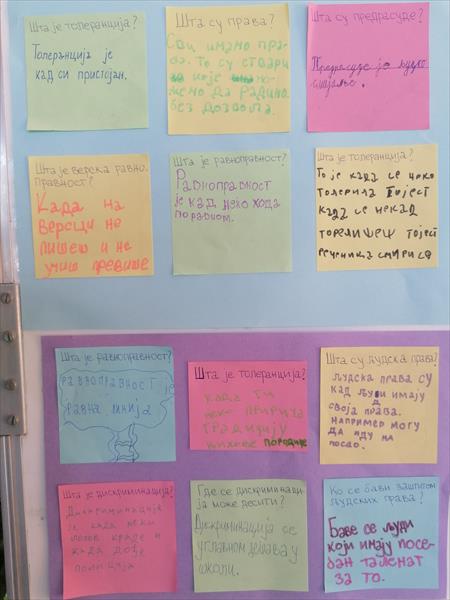 Шта је толеранција?
Толеранција је
кад си пристојан.
Шта су права?
Сви имамо пра-
ва. То су ствари
за које
жено да радимо
без дозвола.
Шта су предрасуде?
Предрасуде је лудо
Шта је верска равно-
правност?
Када на
версци не
пишеш и не
учиш превише
Шта је равноправност?
Равноправност
је кад неко хода
по равном.
Шта је толеранција?
То је када се неко
толерила тојест
када се некад
тојест
реченица смири се
Шта је равноправност?
равноправност је
равна линија
Шта је толеранција?
када ти
неко пририча
традицију
њихове породице
Шта су људска права?
људска права су
кад људи имају
своја права.
например могу
да иду на
посао.
Шта је дискриминација?
Дискриминација
је када неки
лопов краде и
када дође
полиција
Где се дискриминаци-
ја може десити?
Дискриминација се
углавном дешава у
школи.
Ко се бави заштитом
људских права?
Баве се људи
који имају посе-
бан таленат
за то.